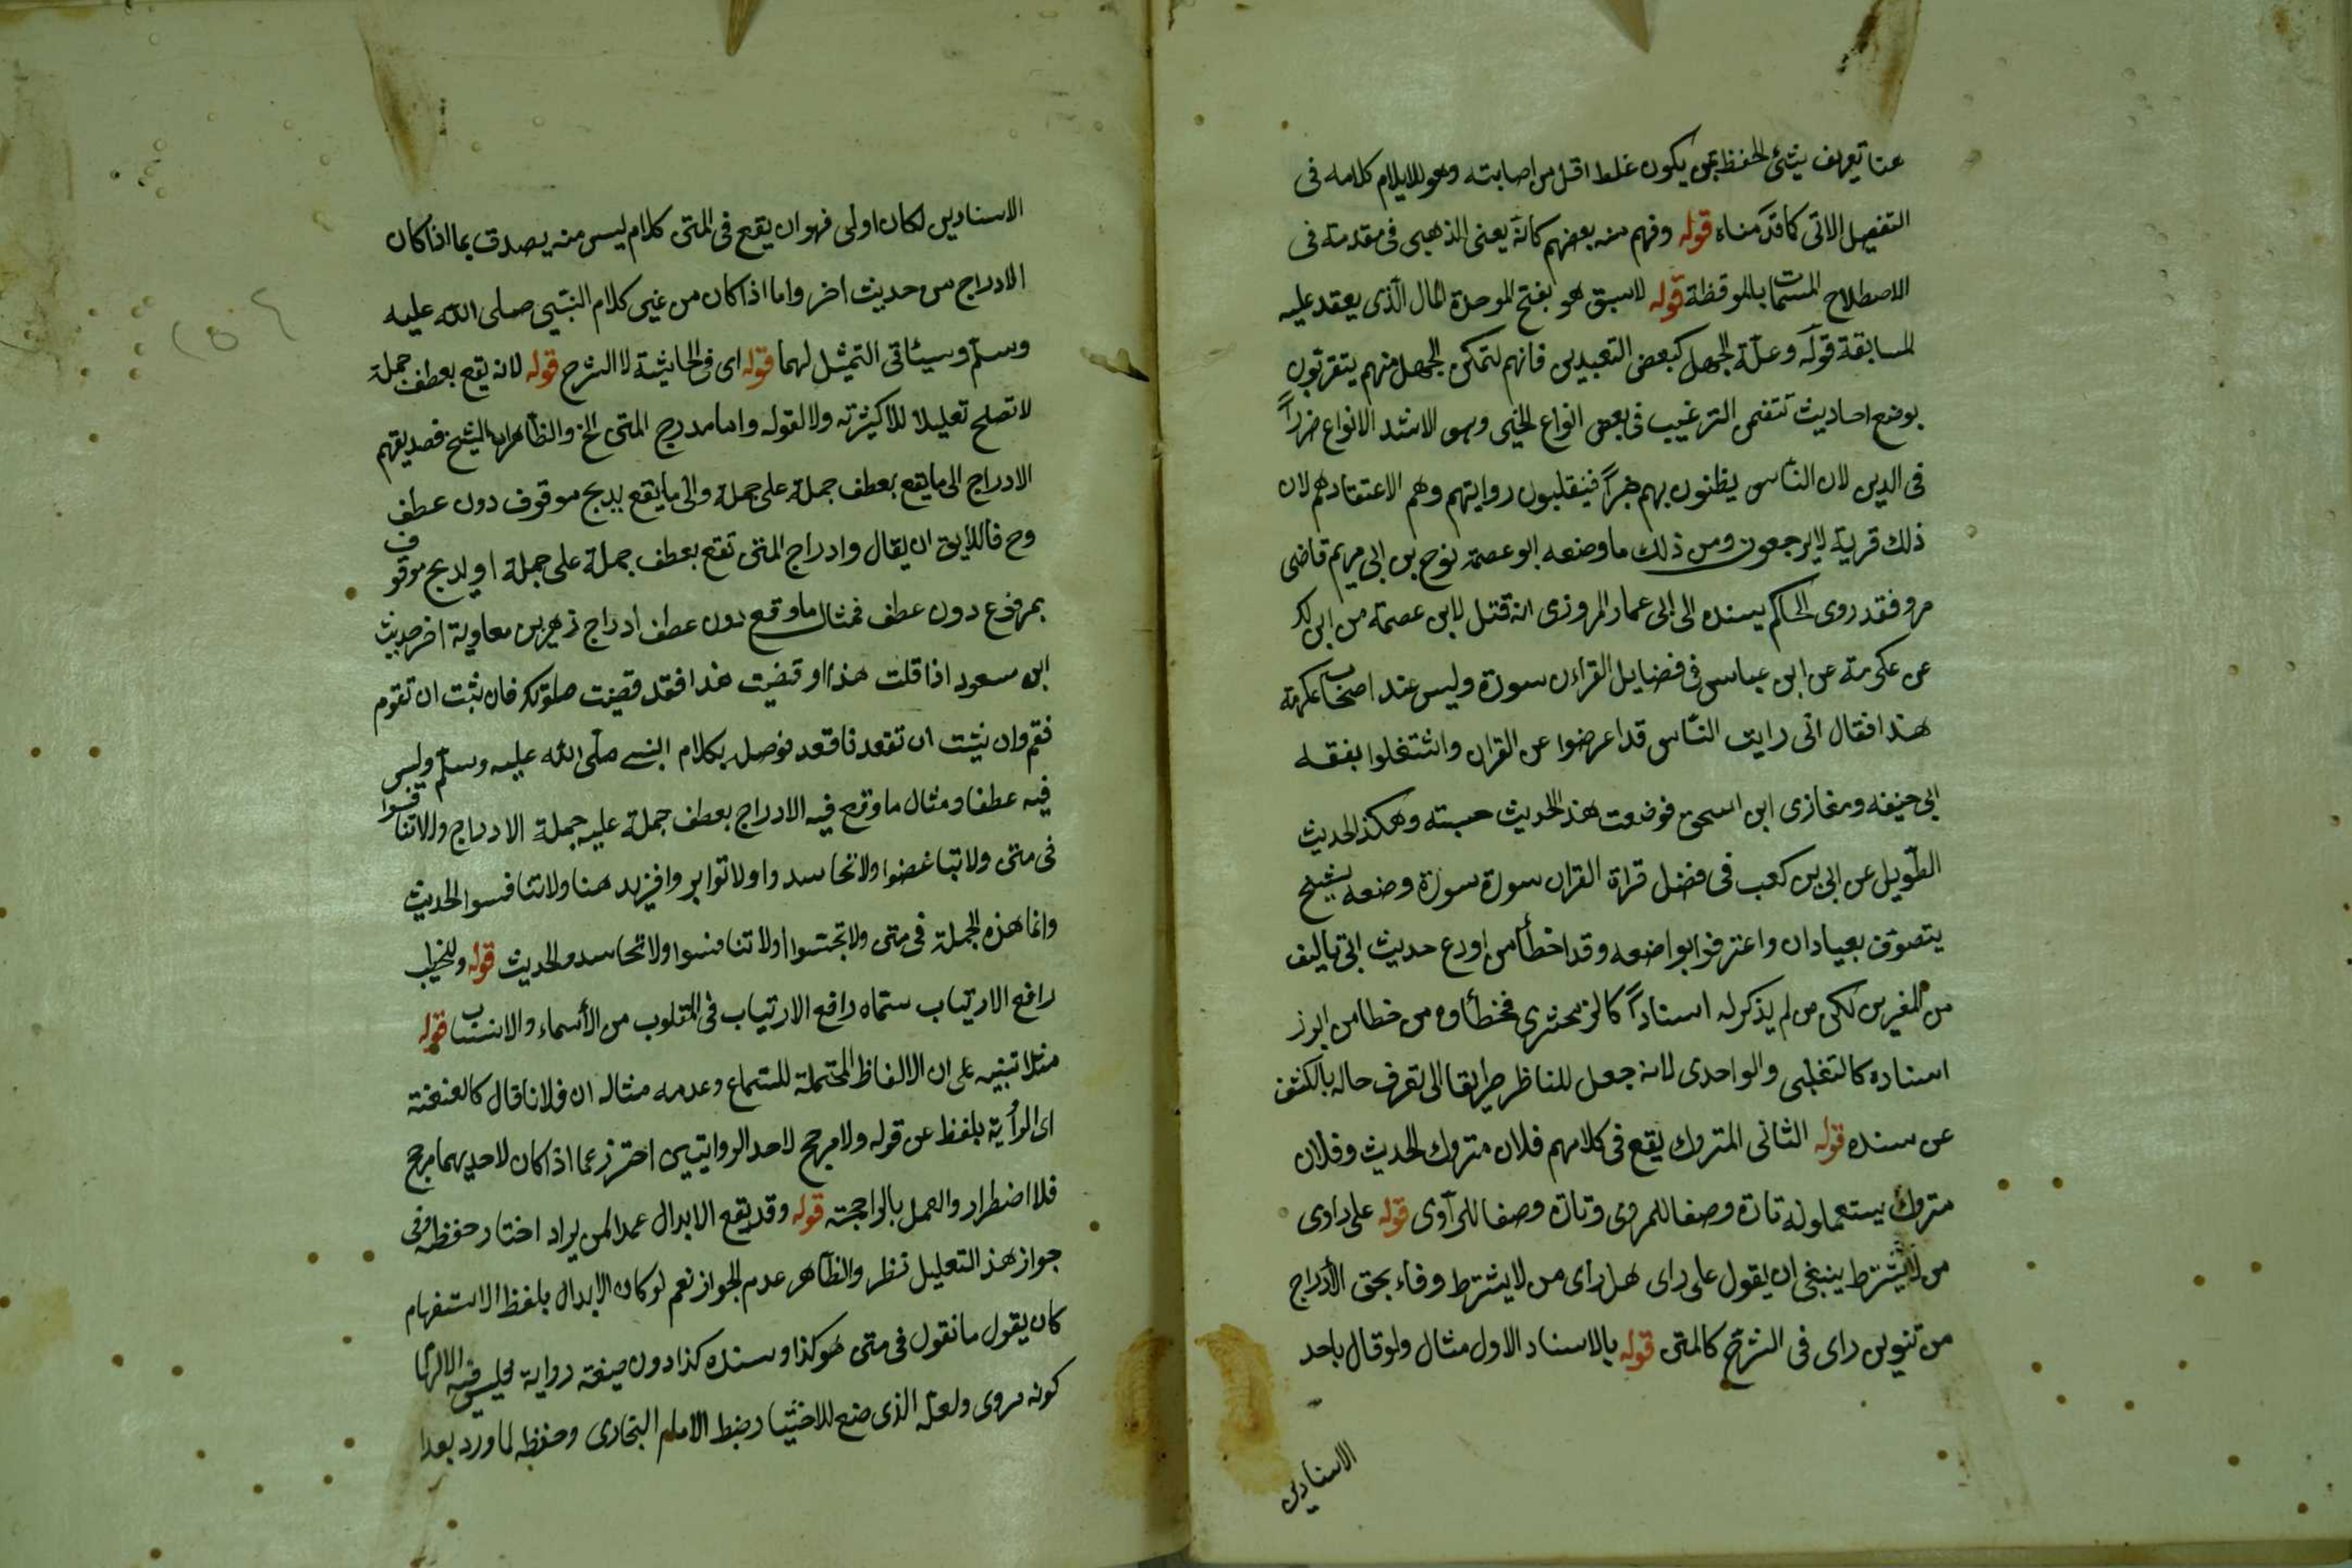 عنا تعريف سيئ الحفظ بمن يكون غلط اقل من اصابته وهو لا يلايم كلامه فى
التفصيل الاتى كما قدمناه قوله وفهم منه بعضهم كانه يعنى الذهبى فى مقدمة فى
الاصطلاح المسمات بالموقظة قوله لا سبق هو بفتح الموحدة المال الذى يعقد عليه
المسابقة قوله وعلة الجهل كبعض التعبدين فانهم لتمكن الجهل منهم يتقربون
بوضع احاديث تتضمن الترغيب فى بعض انواع الخير وهو الاشد الانواع ضررا
فى الدين لان الناس يظنون بهم خيرا فينقلبون روايتهم وهم الاعتقادهم لان
ذلك قربة لا يرجعون ومن ذلك ما وضعه ابو عصمة نوح بن ابى مريم قاضى
مرو فقد روى الحاكم بسنده الى ابى عمار المروزى انه قتل لابى عصمة من اين لك
عن عكرمة عن ابن عباس فى فضايل القراءن سورة وليس عند اصحاب عكرمة
هذا فقال انى رايت الناس قد اعرضوا عن القران واشتغلوا بفقه
ابى حنيفه ومغازى ابن اسحق فوضعت هذا الحديث حسبته وهكذ الحديث
الطويل عن ابى بن كعب فى فضل قراة القران سورة سورة وضعه شيخ
يتصوف بعبادان واعترفوا بواضعه وقد اخطأ من اودع حديث ابى تاليف
من المفرين لكن من لم يذكر له اسنادا كالزمخشرى فخطأوه من خطا من ابرز
اسناده كالتغلبى والواحدى لانه جعل للناظر طريقا الى تعرف حاله بالكشف
عن سنده قوله الثانى المتروك يقع فى كلامهم فلان متروك الحديث وفلان
متروك يستعملونه تارة وصفا للمروى وتارة وصفا للرآوى قوله على راوى
من لا يشترط ينبغى ان يقول على راى هل راى من لا يشترط وفاء بحق الأدراج
من تنوين راى فى الشرح كالمتن قوله بالاسناد الاول مثال ولو قال باحد
الاسنادين
الاسنادين لكان اولى فهو ان يقع فى المتن كلام ليس منه يصدق بما اذا كان
الادراج من حديث اخر واما اذا كان من غير كلام النبى صلى الله عليه
وسلم وسيئاتى التمثيل لهما قوله اى فى الحاشية لا الشرح قوله لانه يقع بعطف جملة
لا تصلح تعليلا للاكيثرته ولا لقوله واما مدرج المتن الخ والظاهر ان الشيخ قصد يقهم
الادراج الى ما يقع بعطف جملة على جملة والى ما يقع بدمج موقوف دون عطف
وح فاللايق ان يقال وادراج المتن تقع بعطف جملة على جملة او بدمج موقوف
بمرفوع دون عطف فمثال ما وقع دون عطف ادراج زهير بن معاوية اخر حديث
ابن مسعود اذا قلت هذا او قضيت هذا فقد قضيت صلوتك فان شئت ان تقوم
فقم وان شيئت ان تقعد فاقعد فوصل بكلام النبى صلى الله عليه وسلم وليس
فيه عطفا ومثال ما وقع فيه الادراج بعطف جملة عليه جملة الادراج ولا تنافسوا
فى متن ولا تباغضوا ولا تحاسدوا ولا توابروا فزيد هنا ولا تنافسوا الحديث
وانما هذه الجملة فى متن ولا تجسسوا ولا تنافسوا ولا تحاسدوا الحديث قوله وللخطيب
رافع الارتياب ستماه رافع الارتياب فى المقلوب من الأسماء والانساب قوله
مثلا تنبيه على ان الالفاظ المحتملة للسماع وعدمه مثاله ان فلانا قال كالعنعنة
اى الرأية بلفظ عن قوله ولا مرجح لاحد الروايتين احترز عما اذا كان لاحديهما مرجح
فلا اضطرار والعمل بالراجحته قوله وقد يقع الابدال عمدا لمن يراد اختار حفظه وفى
جواز هذا التعليل نظر والظاهر عدم الجواز نعم لو كان الابدال بلفظ الاستفهام
كان يقول ما نقول فى متن هو كذا وسنده كذا دون صيغة رواية فليس فيه الا ايهام
كونه مروى ولعل الذى صنع للاختيار ضبط الامام البخارى وحفظه لما ورد بغدا